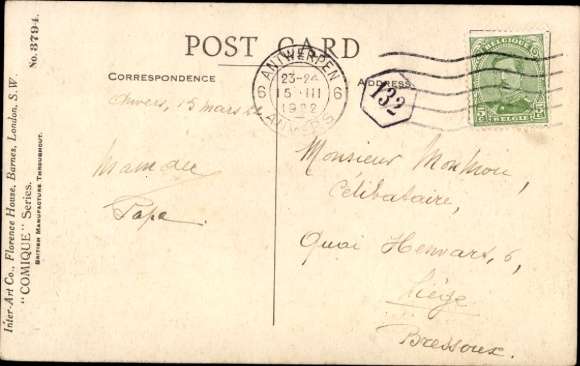 POST CARD
CORRESPONDENCE
ADDRESS
ANTWERPEN
23-24
6 15 III 6
1922
ANVERS
132
BELGIQUE
5c 5c
BELGIE
Anvers, 15 mars 22
Papa
Monsieur Monmoin,
Célibataire,
Quai Henvart, 6,
Liége
Bressoux.
Inter-Art Co., Florence House, Barnes, London, S.W.
"COMIQUE" Series.
No. 3794.
BRITISH MANUFACTURE THROUGHOUT.